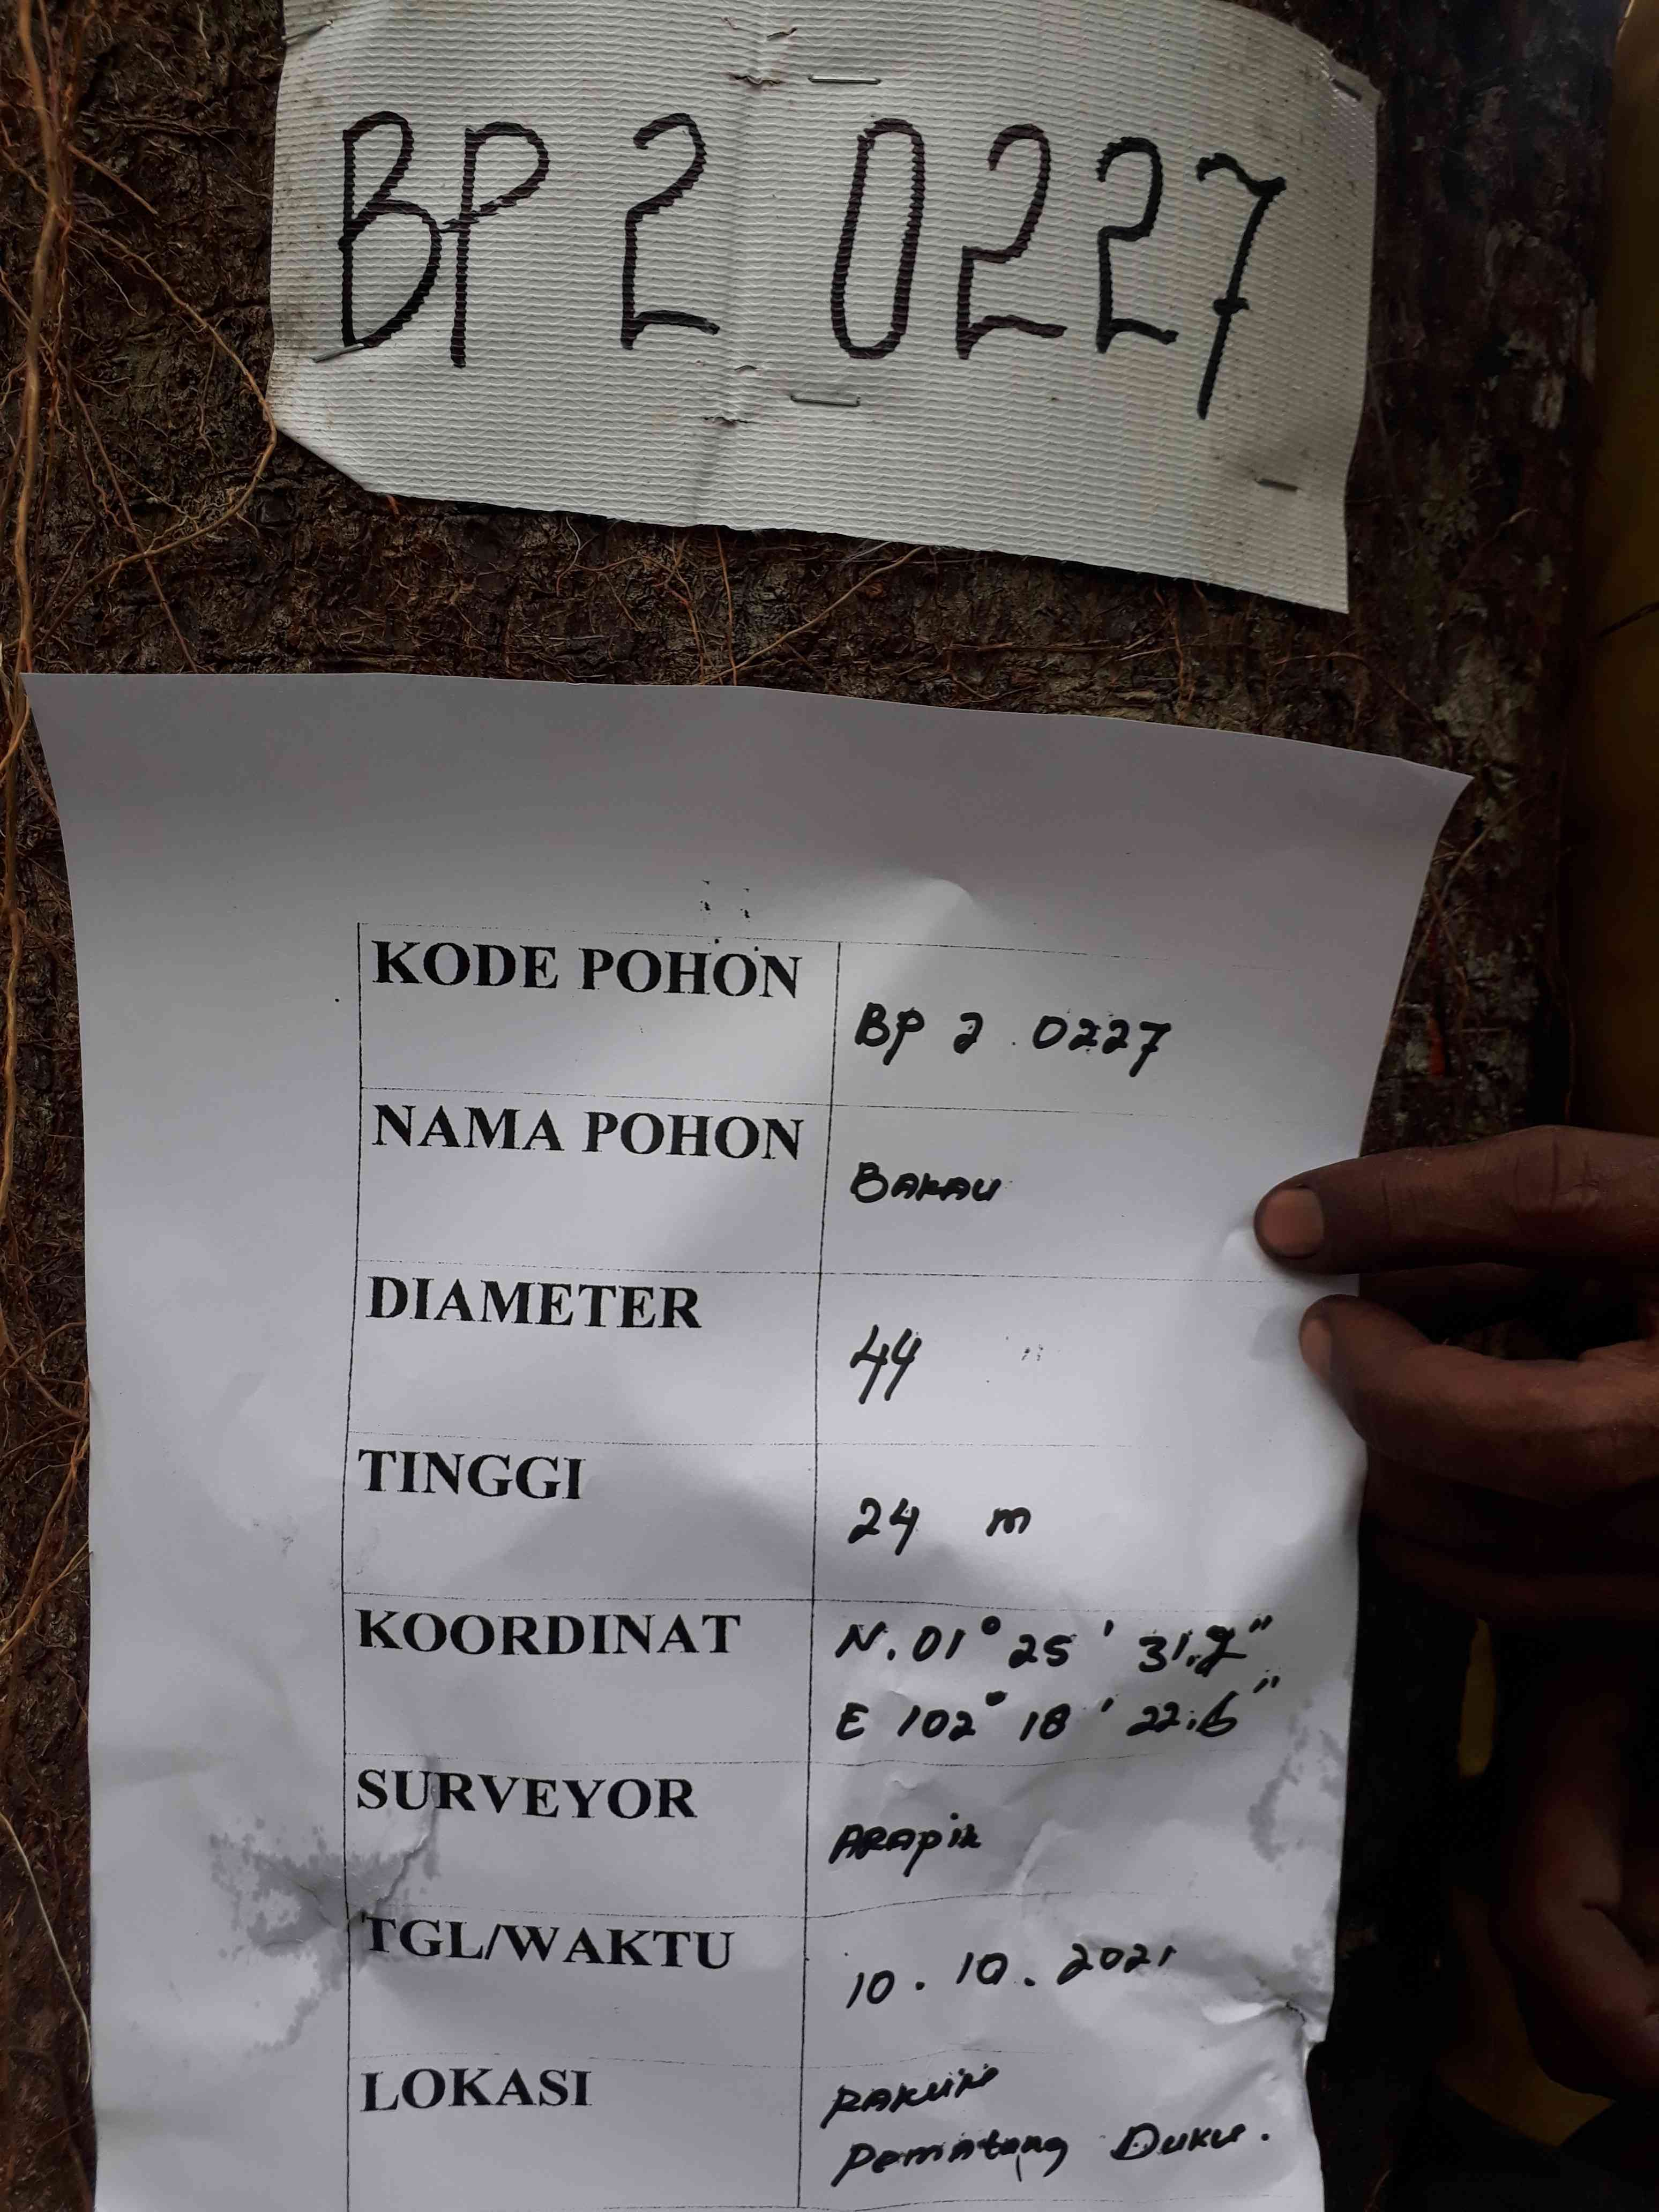 BP 2 0227
KODE POHON
BP 2 0227
NAMA POHON
BAKAU
DIAMETER
44
TINGGI
24 m
KOORDINAT
N. 01° 25' 31."
E 102° 18' 22.6"
SURVEYOR
TGL/WAKTU
10. 10. 2021
LOKASI
Duku.